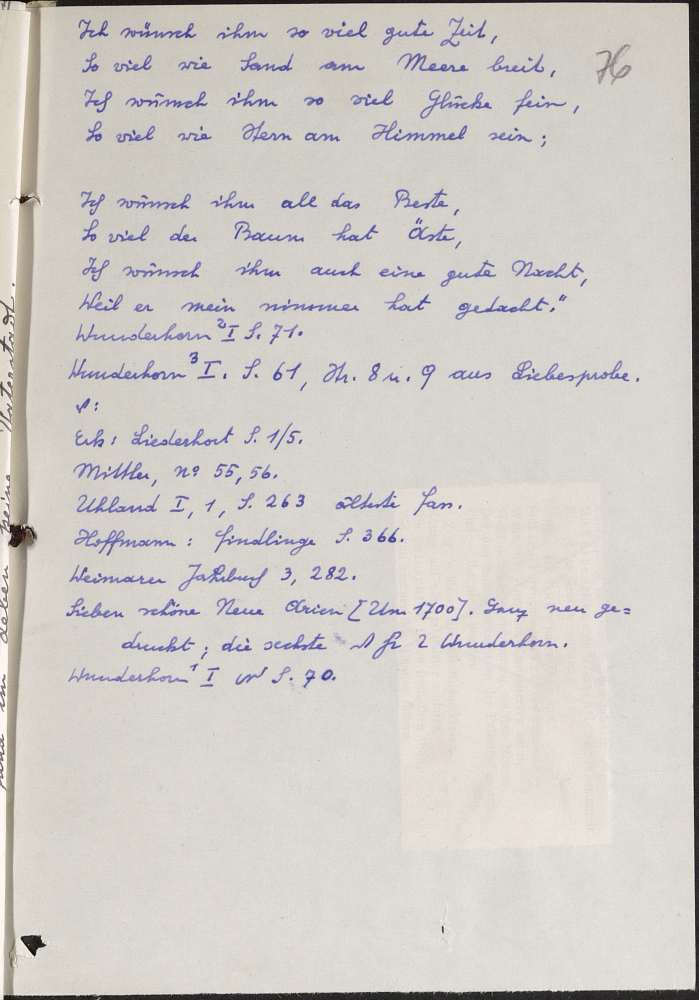 76
Ich wünsch ihm so viel gute Zeit,
So viel wie Sand am Meere breit,
Ich wünsch ihm so viel Glücke fein,
So viel wie Stern am Himmel sein;
Ich wünsch ihm all das Beste,
So viel der Baum hat Äste,
Ich wünsch ihm auch eine gute Nacht,
Weil er mein nimmer hat gedacht."
Wunderhorn ² I S. 71.
Wunderhorn ³ I. S. 61, Str. 8 u. 9 aus Liebesprobe.
Erk: Liederhort S. 1/5.
Mittler, No 55, 56.
Uhland I, 1, S. 263 älteste Fass.
Hoffmann: Findlinge S. 366.
Weimarer Jahrbuch 3, 282.
Sieben schöne Neue Arien [Um 1700]. Ganz neu ge=
druckt; die sechste 2 Wunderhorn.
Wunderhorn ¹ I S. 70.